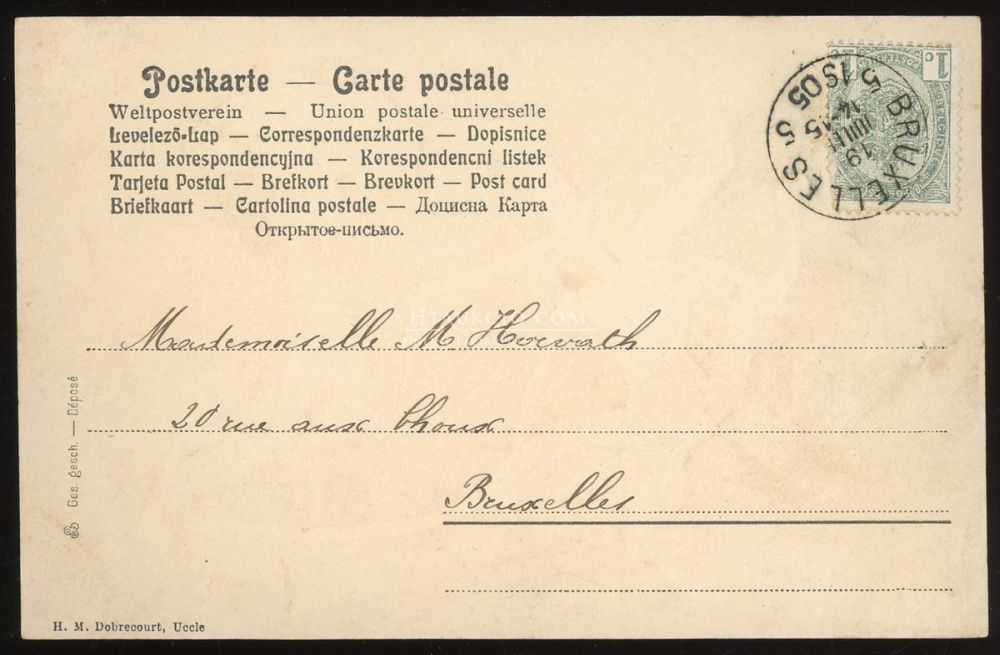 Postkarte — Carte postale
Weltpostverein — Union postale universelle
Levelező-Lap — Correspondenzkarte — Dopisnice
Karta korespondencyjna — Korespondencni listek
Tarjeta Postal — Brefkort — Brevkort — Post card
Briefkaart — Cartolina postale — Доцисна Карта
Открытое-письмо.
1c
BRUXELLES 5
5 1S05
19
Mademoiselle M Horvath
20 rue aux Choux
Bruxelles
Ges. gesch. — Déposé
H. M. Dobrecourt, Uccle